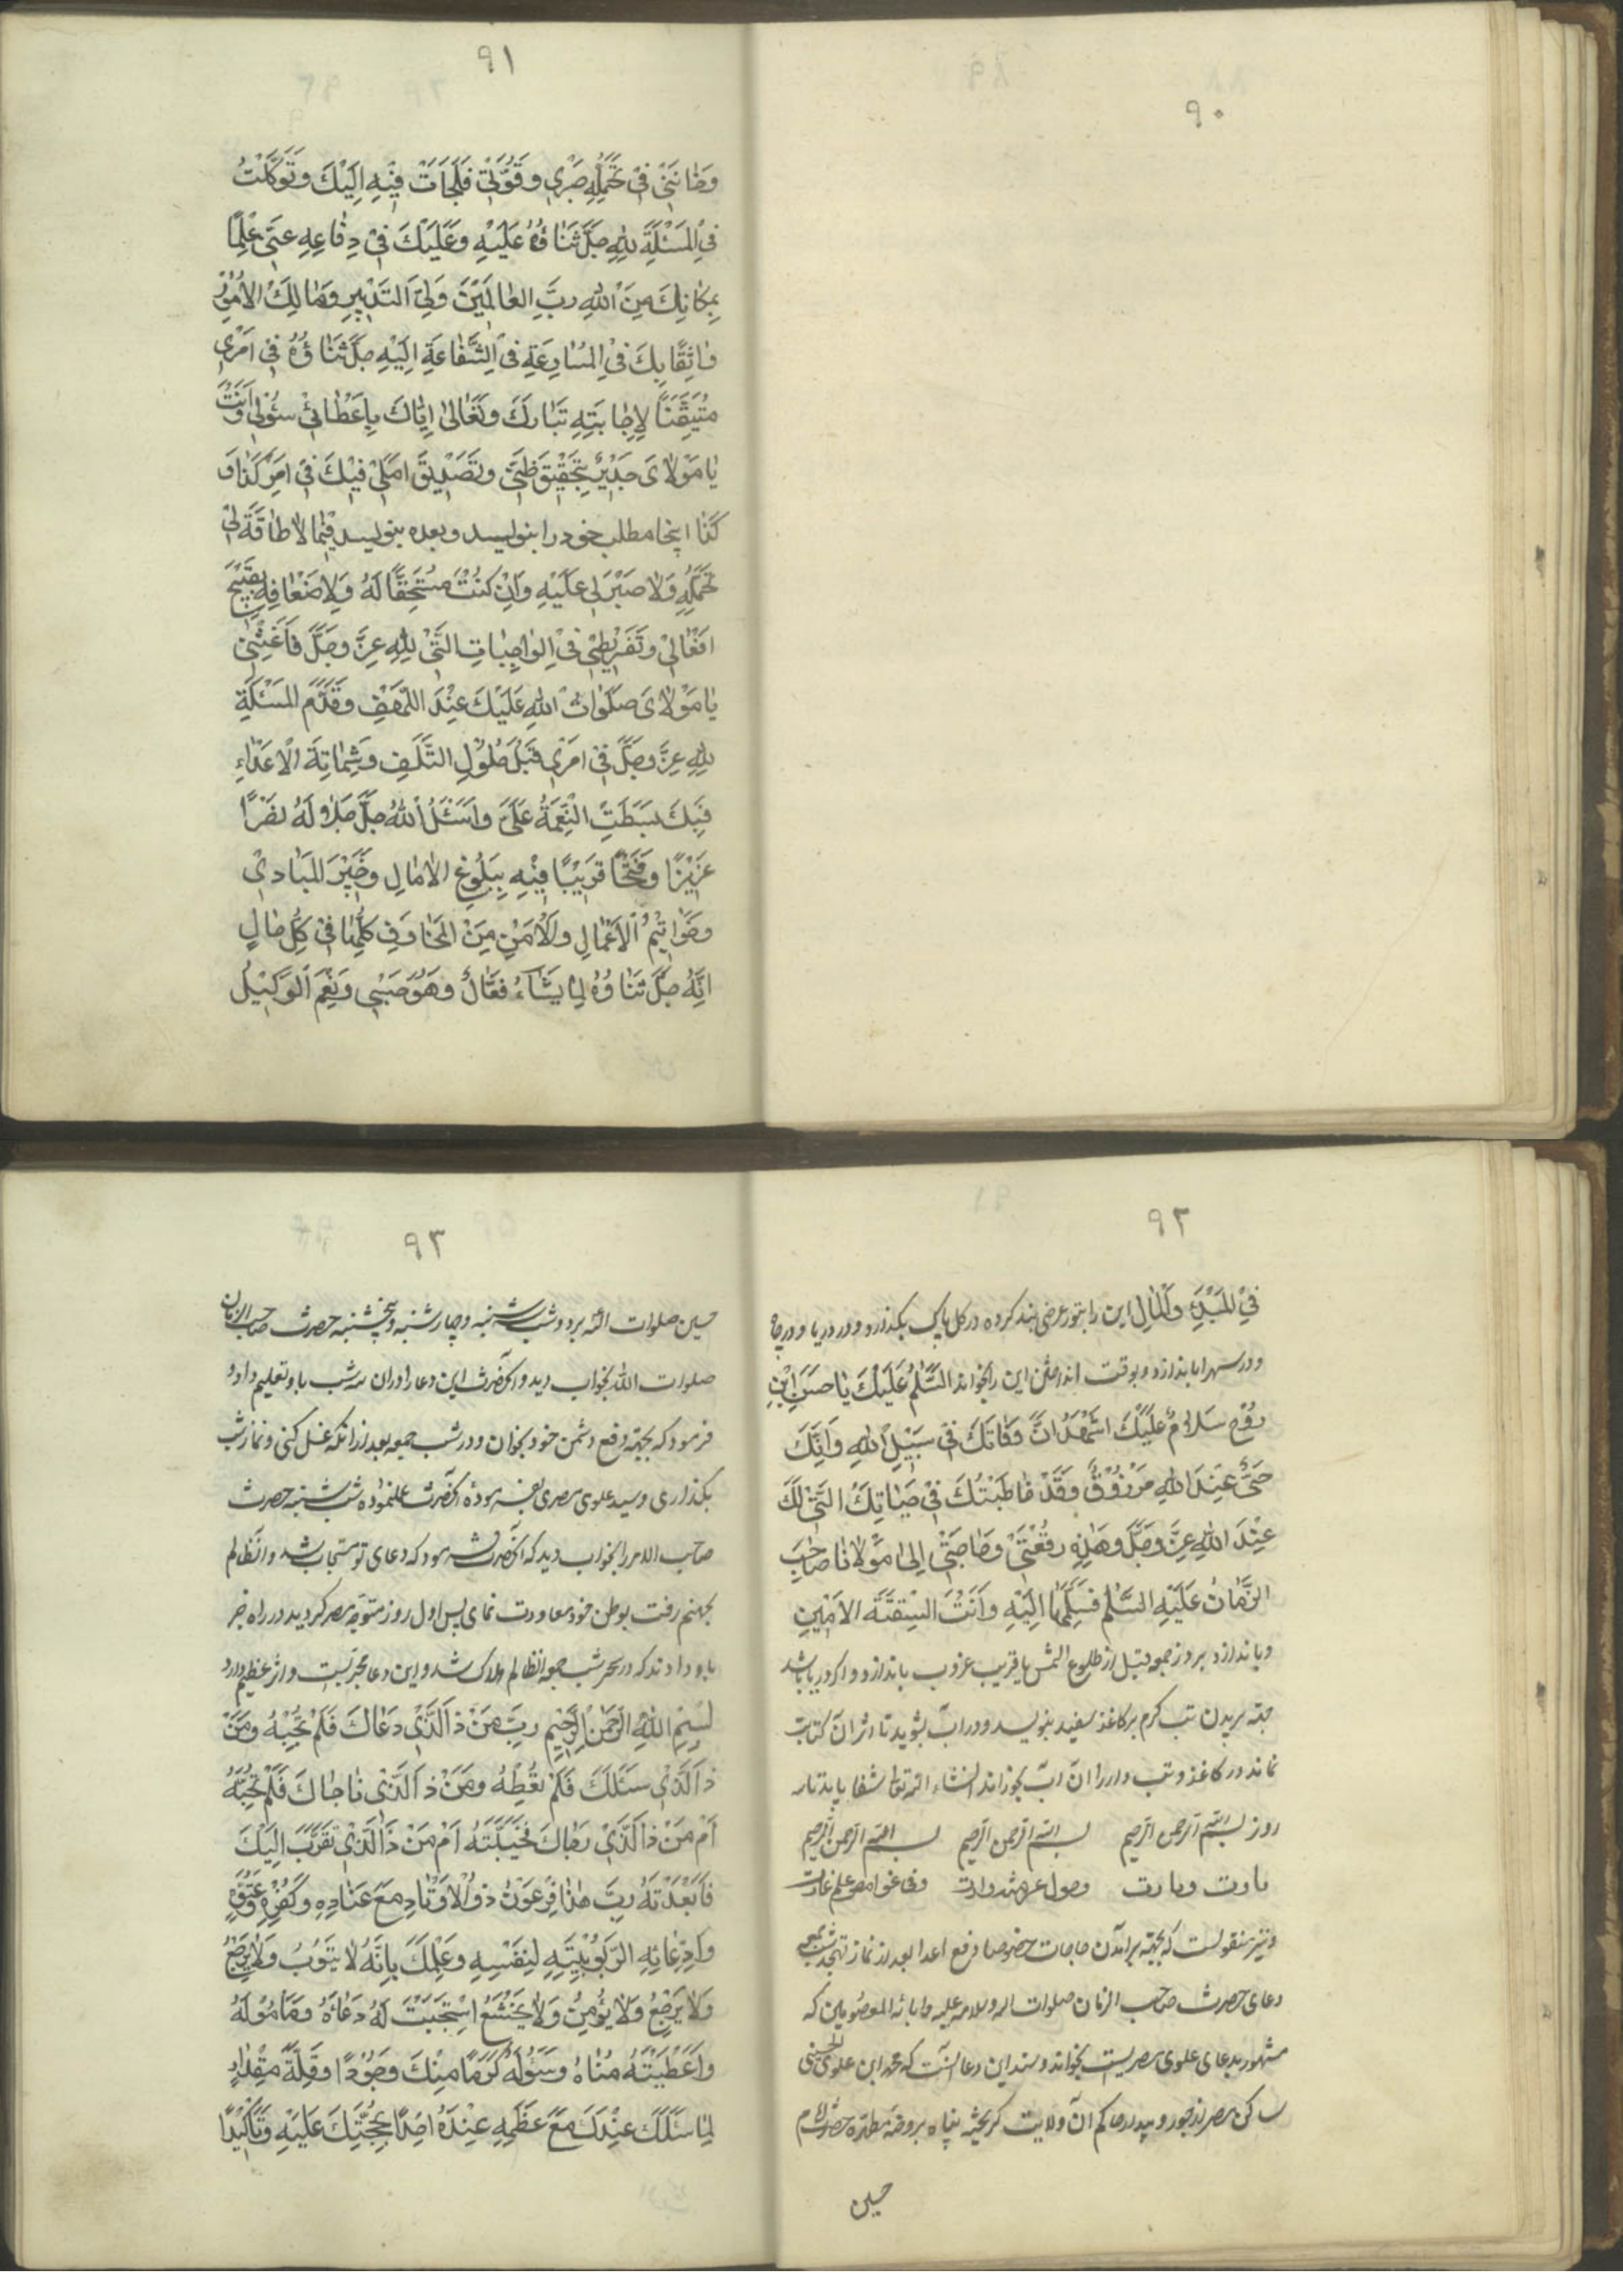 ۹۰
۹۱
وخانني في تحمّله صبري وقوّتي فلجات فيه اليك وتوكّلت
في المسئلة لله جلّ ثناؤه عليه وعليك في دفاعه عنّي علمًا
بمكانك من الله ربّ العالمين وليّ التدبير ومالك الامور
واثقًا بك في المسارعة في الشّفاعة اليه جلّ ثناؤه في امري
متيقّنًا لاجابته تبارك وتعالى ايّاك باعطائي سؤلي وانت
يا مولاى جدير بتحقيق ظنّي وتصديق املي فيك في امر كذا و
كذا اينجا مطلب خود را بنويسد وبعده بنويسد فيما لا طاقة لي
تحمّله ولا صبر لي عليه وان كنت مستحقّا له ولاضعافه بقبيح
افعالي وتفريطي في الواجبات التي لله عزّ وجلّ فاغثني
يا مولاى صلوات الله عليك عند اللّهف وقدّم المسئلة
لله عزّ وجلّ في امري قبل حلول التّلف وشماتة الاعداء
فبك بسطت النّعمة علىّ واسئل الله جلّ جلاله نصرًا
عزيزًا وفتحًا قريبًا فيه ببلوغ الامال وخير المبادي
وخواتيم الاعمال والامن من المخاوف كلّها في كلّ حال
انّه جلّ ثناؤه لما يشاء فعّال وهو حسبي ونعم الوكيل
۹۲
في المبدء والمال اين را بنور عرضى بند كرده در كل پاك بكذارد و در دريا و در چاه
و در سهرابا بندازد و بوقت انداختن اين را بخواند السّلم عليك يا حسين ابن
روح سلام عليك اشهد انّ وفاتك في سبيل الله وانّك
حيّ عند الله مرزوق وقد خاطبتك في حياتك التي لك
عند الله عزّ وجلّ وهذه رقعتي وحاجتي الى مولانا صاحب
الزّمان عليه السّلم فسلّمها اليه وانت الثّقة الامين
و بااندازد بروز جمعه قبل از طلوع الشمس يا قريب غروب بااندازد و اكر دريا باشد
جهة بريدن تب كرم بركاغذ سفيد بنويسد و در آب بشويد تا اثر ان كتابت
نماند در كاغذ و تب دار را ان آب بخوراند انشاء الله تعالى شفا يابد تا سه
روز بسم الله الرحمن الرحيم بسم الله الرحمن الرحيم بسم الله الرحمن الرحيم
و نيز منقولست كه بجهة برامدن حاجات خصوصا دفع اعدا بعد از نماز تهجد شب جمعه
دعاى حضرت صاحب الزمان صلوات الله وسلامه عليه وابائه المعصومين كه
مشهور بدعاى علوى مصريست بخواند و سند اين دعا انست كه محمد ابن علوى الحسينى
ساكن مصر از جور و بيداد حاكم آن ولايت كريخته پناه بروضهٔ مطهرهٔ حضرت امام
حسين
۹۳
حسين صلوات الله برد و شب سه شنبه و چهارشنبه و پنجشنبه حضرت صاحب الزمان
صلوات الله بخواب ديد و آنحضرت اين دعا را در ان سه شب باو تعليم داد و
فرمود كه بجهة دفع دشمن خود بخوان و در شب جمعه بعد از انكه غسل كنى و نماز شب
بكذارى و سيد علوى مصرى بفرموده آنحضرت عمل نموده شب شنبه حضرت
صاحب الامر را بخواب ديد كه آنحضرت فرمود كه دعاى تو مستجاب شد و انظالم
بجهنم رفت بوطن خود معاودت نماى پس اول روز متوجه مصر كرديد در راه خبر
باو دادند كه در سحر شب جمعه انظالم هلاك شد و اين دعا مجربست و اثر عظيم دارد
بسم الله الرحمن الرحيم ربّ من ذا الّذي دعاك فلم تجبه ومن
ذا الّذي سئلك فلم تعطه ومن ذا الّذي ناجاك فلم تجبه
ام من ذا الّذي رجاك فخيّبته ام من ذا الّذي تقرّب اليك
فابعدته ربّ هذا فرعون ذو الاوتاد مع عناده وكفره وعتوّه
وادّعائه الرّبوبيّة لنفسه وعلمك بانّه لا يتوب ولا يرجع
ولا يرجع ولا يؤمن ولا يخشع استجبت له دعائه وما موله
واعطيته مناه وسؤله كرمًا منك وجودًا وقلّة مقدار
لما سئلك عندك مع عظمه عنده اخذًا بحجّتك عليه وتاكيدًا